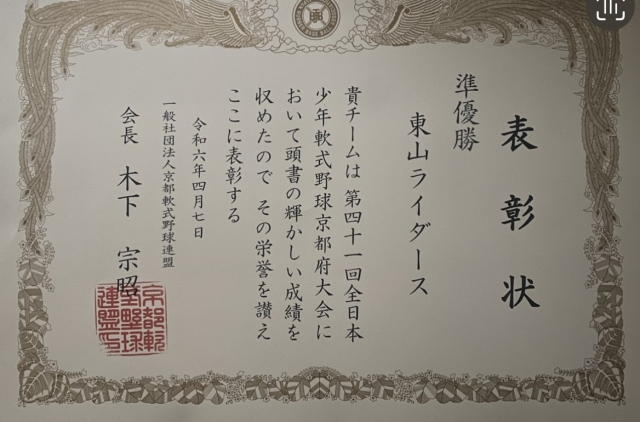 表彰状
準優勝
東山ライダース
貴チームは 第四十一回全日本
少年軟式野球京都府大会に
おいて頭書の輝かしい成績を
収めたので その栄誉を讃え
ここに表彰する
令和六年四月七日
一般社団法人京都軟式野球連盟
会長 木下 宗昭
京都軟
式野球
連盟印